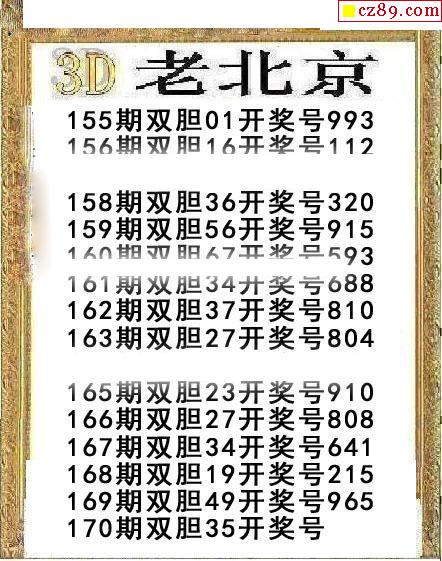 cz89.com
3D 老北京
155期双胆01开奖号993
156期双胆16开奖号112
158期双胆36开奖号320
159期双胆56开奖号915
160期双胆67开奖号593
161期双胆34开奖号688
162期双胆37开奖号810
163期双胆27开奖号804
165期双胆23开奖号910
166期双胆27开奖号808
167期双胆34开奖号641
168期双胆19开奖号215
169期双胆49开奖号965
170期双胆35开奖号